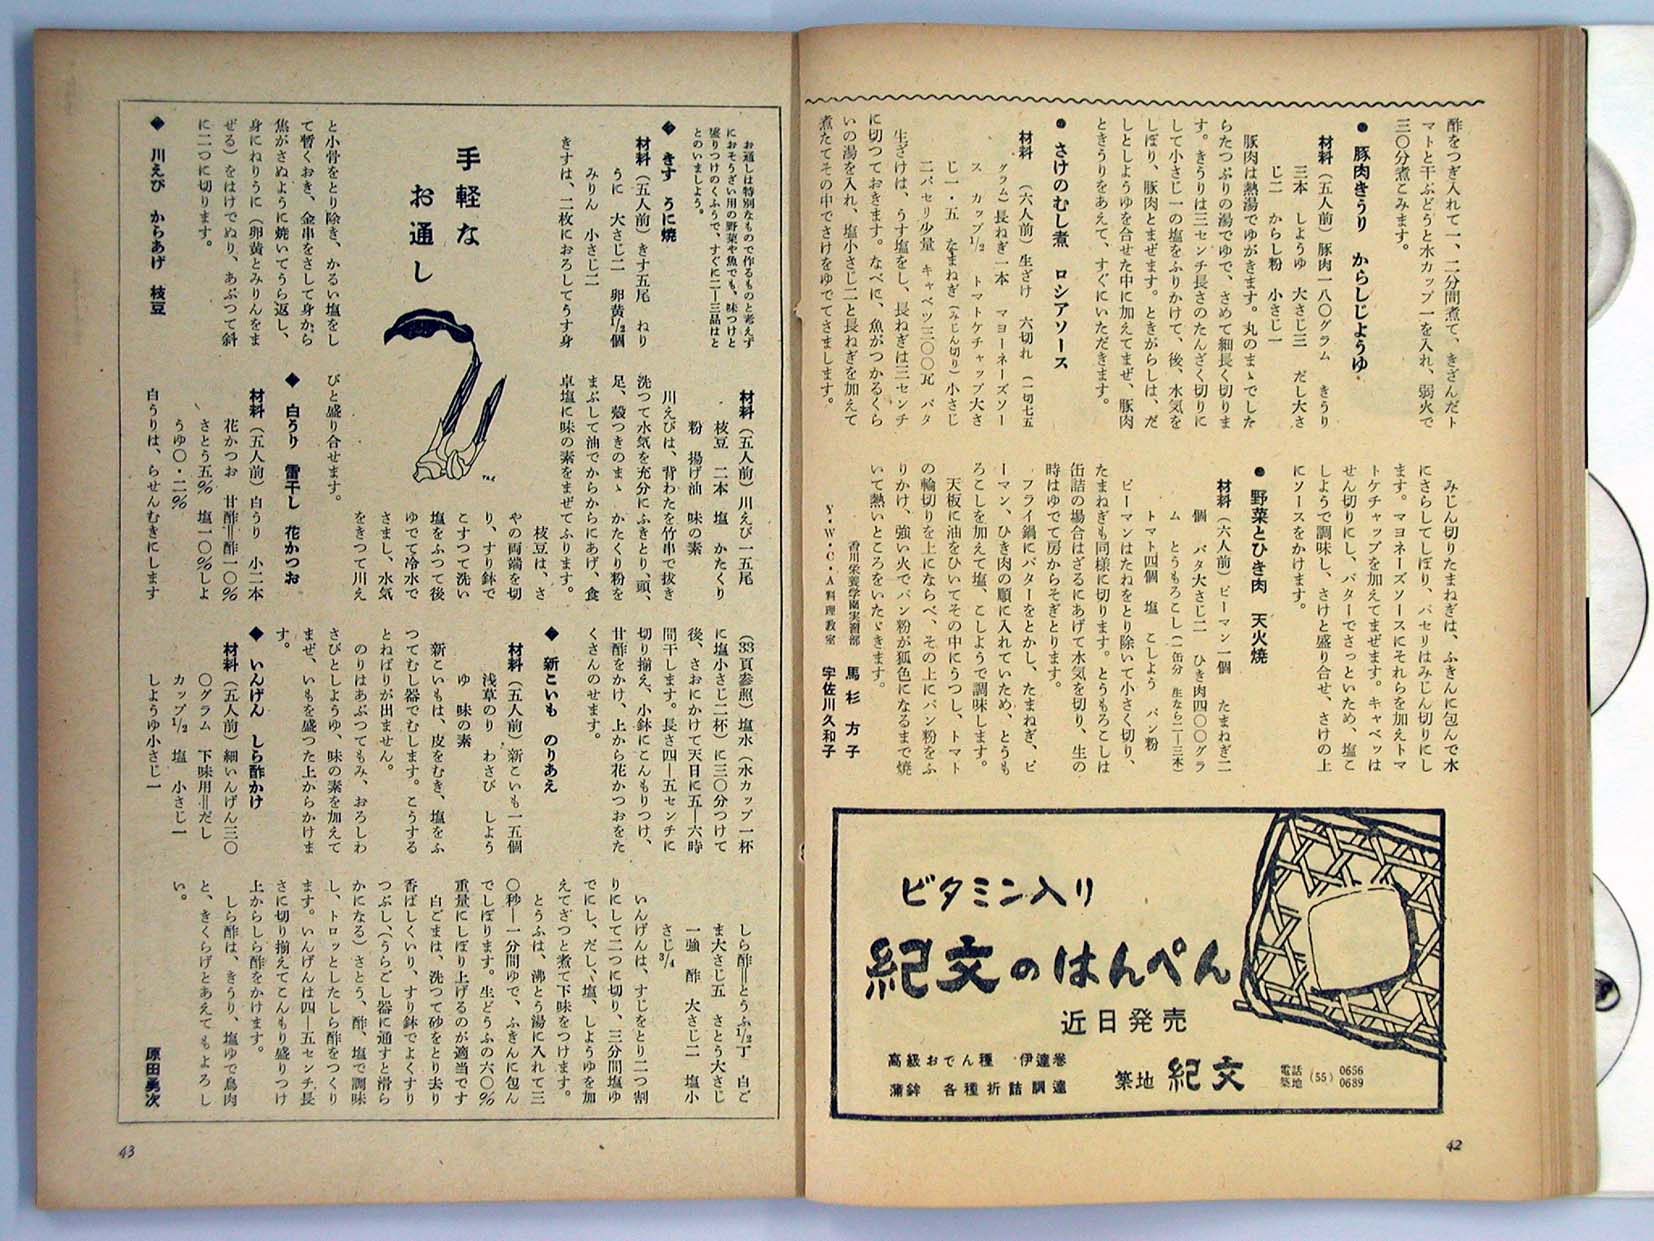 酢をつぎ入れて一、二分間煮て、きざんだト
マトと干ぶどうと水カップ一を入れ、弱火で
三〇分煮こみます。
● 豚肉きうり　からしじようゆ
材料（五人前）豚肉一八〇グラム　きうり
三本　しようゆ　大さじ三　だし大さ
じ二　からし粉　小さじ一
豚肉は熱湯でゆがきます。丸のまゝでした
らたつぷりの湯でゆで、さめて細長く切りま
す。きうりは三センチ長さのたんざく切りに
して小さじ一の塩をふりかけて、後、水気を
しぼり、豚肉とまぜます。ときがらしは、だ
しとしようゆを合せた中に加えてまぜ、豚肉
ときうりをあえて、すぐにいただきます。
● さけのむし煮　ロシアソース
材料　（六人前）生ざけ　六切れ　（一切七五
グラム）長ねぎ一本　マヨーネーズソー
ス　カップ1/2　トマトケチャップ大さ
じ一・五　たまねぎ（みじん切り）小さじ
二パセリ少量　キャベツ三〇〇瓦　バタ
生ざけは、うす塩をし、長ねぎは三センチ
に切つておきます。なべに、魚がつかるくら
いの湯を入れ、塩小さじ二と長ねぎを加えて
煮たてその中でさけをゆでてさまします。
みじん切りたまねぎは、ふきんに包んで水
にさらしてしぼり、パセリはみじん切りにし
ます。マヨネーズソースにそれらを加えトマ
トケチャップを加えてまぜます。キャベッは
せん切りにし、バターでさっといため、塩こ
しようで調味し、さけと盛り合せ、さけの上
にソースをかけます。
● 野菜とひき肉　天火焼
材料（六人前）ピーマン一個　たまねぎ二
個　バタ大さじ二　ひき肉四〇〇グラ
ム　とうもろこし（一缶分　生なら二―三本）
トマト四個　塩　こしよう　パン粉
ピーマンはたねをとり除いて小さく切り、
たまねぎも同様に切ります。とうもろこしは
缶詰の場合はざるにあげて水気を切り、生の
時はゆでて房からそぎとります。
フライ鍋にバターをとかし、たまねぎ、ピ
ーマン、ひき肉の順に入れていため、とうも
ろこしを加えて塩、こしようで調味します。
天板に油をひいてその中にうつし、トマト
の輪切りを上にならべ、その上にパン粉をふ
りかけ、強い火でパン粉が狐色になるまで焼
いて熱いところをいたゞきます。
香川栄養学園実習部　馬杉方子
Y・W・C・A料理教室　宇佐川久和子
ビタミン入り
紀文のはんぺん
近日発売
高級おでん種　伊達巻
蒲鉾　各種折詰調達
築地 紀文
電話 築地 (55) 0656 0689
42
手軽な
お通し
お通しは特別なもので作るものと考えず
におそうざい用の野菜や魚でも、味つけと
盛りつけのくふうで、すぐに二―三品はと
とのいましよう。
◆ きす　うに焼
材料（五人前）きす五尾　ねり
うに　大さじ二　卵黄1/2個
みりん　小さじ二
きすは、二枚におろしてうす身
と小骨をとり除き、かるい塩をし
て暫くおき、金串をさして身から
焦がさぬように焼いてうら返し、
身にねりうに（卵黄とみりんをま
ぜる）をはけでぬり、あぶつて斜
に二つに切ります。
◆ 川えび　からあげ　枝豆
材料（五人前）川えび一五尾
枝豆　二本　塩　かたくり
粉　揚げ油　味の素
川えびは、背わたを竹串で抜き
洗つて水気を充分にふきとり、頭、
足、殻つきのまゝ　かたくり粉を
まぶして油でからからにあげ、食
卓塩に味の素をまぜてふります。
枝豆は、さ
やの両端を切
り、すり鉢で
こすつて洗い
塩をふつて後
ゆでて冷水で
さまし、水気
をきつて川え
びと盛り合せます。
◆ 白うり　雷干し　花かつお
材料（五人前）白うり　小二本
花かつお　甘酢＝酢一〇％
さとう五％　塩一〇％しよ
うゆ〇・二％
白うりは、らせんむきにします
（33頁参照）塩水（水カップ一杯
に塩小さじ二杯）に三〇分つけて
後、さおにかけて天日に五―六時
間干します。長さ四―五センチに
切り揃え、小鉢にこんもりつけ、
甘酢をかけ、上から花かつおをた
くさんのせます。
◆ 新こいも　のりあえ
材料（五人前）新こいも一五個
浅草のり　わさび　しよう
ゆ　味の素
新こいもは、皮をむき、塩をふ
つてむし器でむします。こうする
とねばりが出ません。
のりはあぶつてもみ、おろしわ
さびとしようゆ、味の素を加えて
まぜ、いもを盛つた上からかけま
す。
◆ いんげん　しら酢かけ
材料（五人前）細いんげん三〇
〇グラム　下味用＝だし
カップ1/2　塩　小さじ一
しようゆ小さじ一
しら酢＝とうふ1/2丁　白ご
ま大さじ五　さとう大さじ
一強　酢　大さじ二　塩小
さじ3/4
いんげんは、すじをとり二つ割
りにして二つに切り、三分間塩ゆ
でにし、だし、塩、しようゆを加
えてさつと煮て下味をつけます。
とうふは、沸とう湯に入れて三
〇秒―一分間ゆで、ふきんに包ん
でしぼります。生どうふの六〇％
重量にしぼり上げるのが適当です
白ごまは、洗つて砂をとり去り
香ばしくいり、すり鉢でよくすり
つぶし、（うらごし器に通すと滑ら
かになる）さとう、酢、塩で調味
し、トロッとしたしら酢をつくり
ます。いんげんは四―五センチ長
さに切り揃えてこんもり盛りつけ
上からしら酢をかけます。
しら酢は、きうり、塩ゆで鳥肉
と、きくらげとあえてもよろし
い。
原田勇次
43